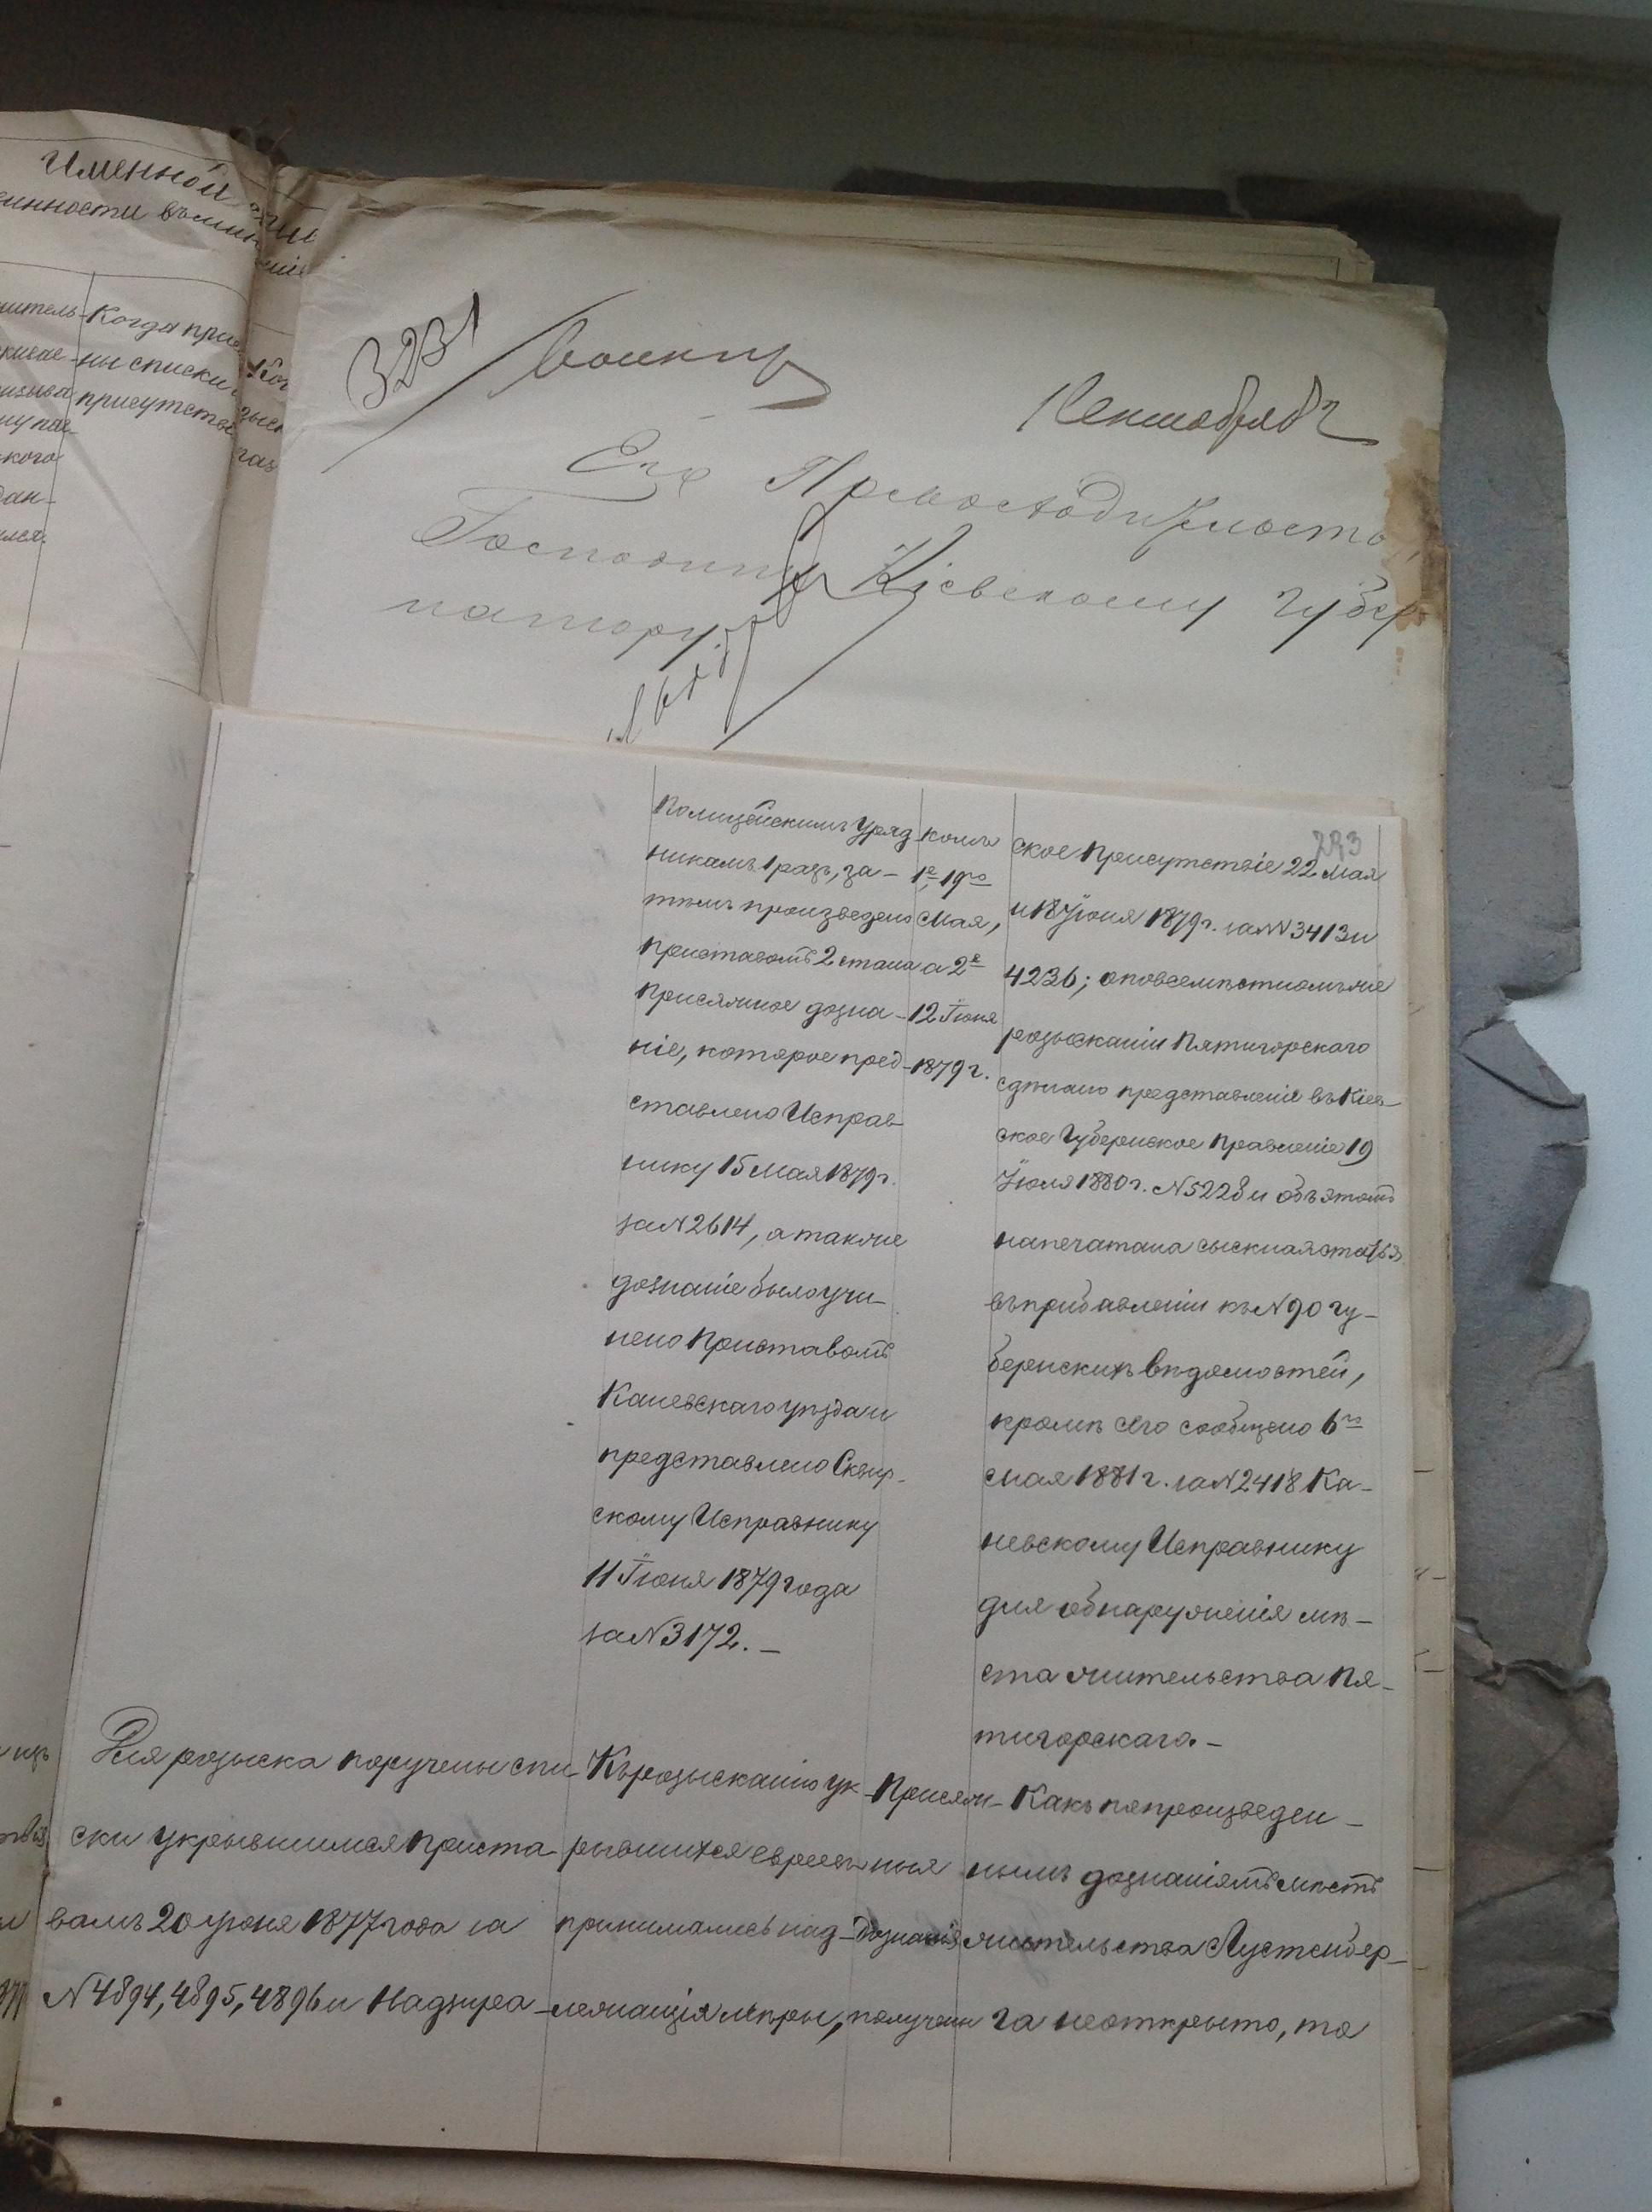 Именной
инности въ
Когда при
ны списки
присутств
3231
1 Сентября
Его Превосходительству
Господину Кіевскому Губер-
натору.
223
Полицейскимъ Уряд
никамъ 1 разъ, за-
тѣмъ произведено
приставомъ 2 стана
присяжное дозна-
ніе, которое пред-
ставлено Исправ
нику 15 Мая 1879 г.
за N 2614, а также
дознаніе было учи-
нено Приставомъ
Каневскаго уѣзда и
представлено Сквир-
скому Исправнику
11 Іюня 1879 года
за N 3172. –
комъ
1е, 19го
Мая,
а 2е
12 Іюня
1879 г.
ское Присутствіе 22 Мая
и 18 Іюня 1879 г. за NN 3413 и
4236; о повсемѣстномъ же
розысканіи Пятигорского
сдѣлано представленіе въ Кіев-
ское Губернское Правленіе 19
Іюля 1880 г. N 5228 и объ этомъ
напечатана сыскная статья
въ прибавленіи къ N 90 гу-
бернскихъ вѣдомостей,
кромѣ сего сообщено 6го
Мая 1881 г. за N 2418 Ка-
невскому Исправнику
для обнаруженія мѣ-
ста жительства Пя-
тигорскаго. –
Для розыска поручены спи-
ски укрывшимся приста-
вамъ 20 Іюня 1877 года за
N 4894, 4895, 4896 и Надзира-
Къ розысканію ук-
рывшихся евреевъ
принимались над-
лежащія мѣры,
Присяж-
ныя
дознанія
получены
Какъ по произведен-
нымъ дознаніямъ мѣсто
жительства Лустенбер-
га не открыто, то